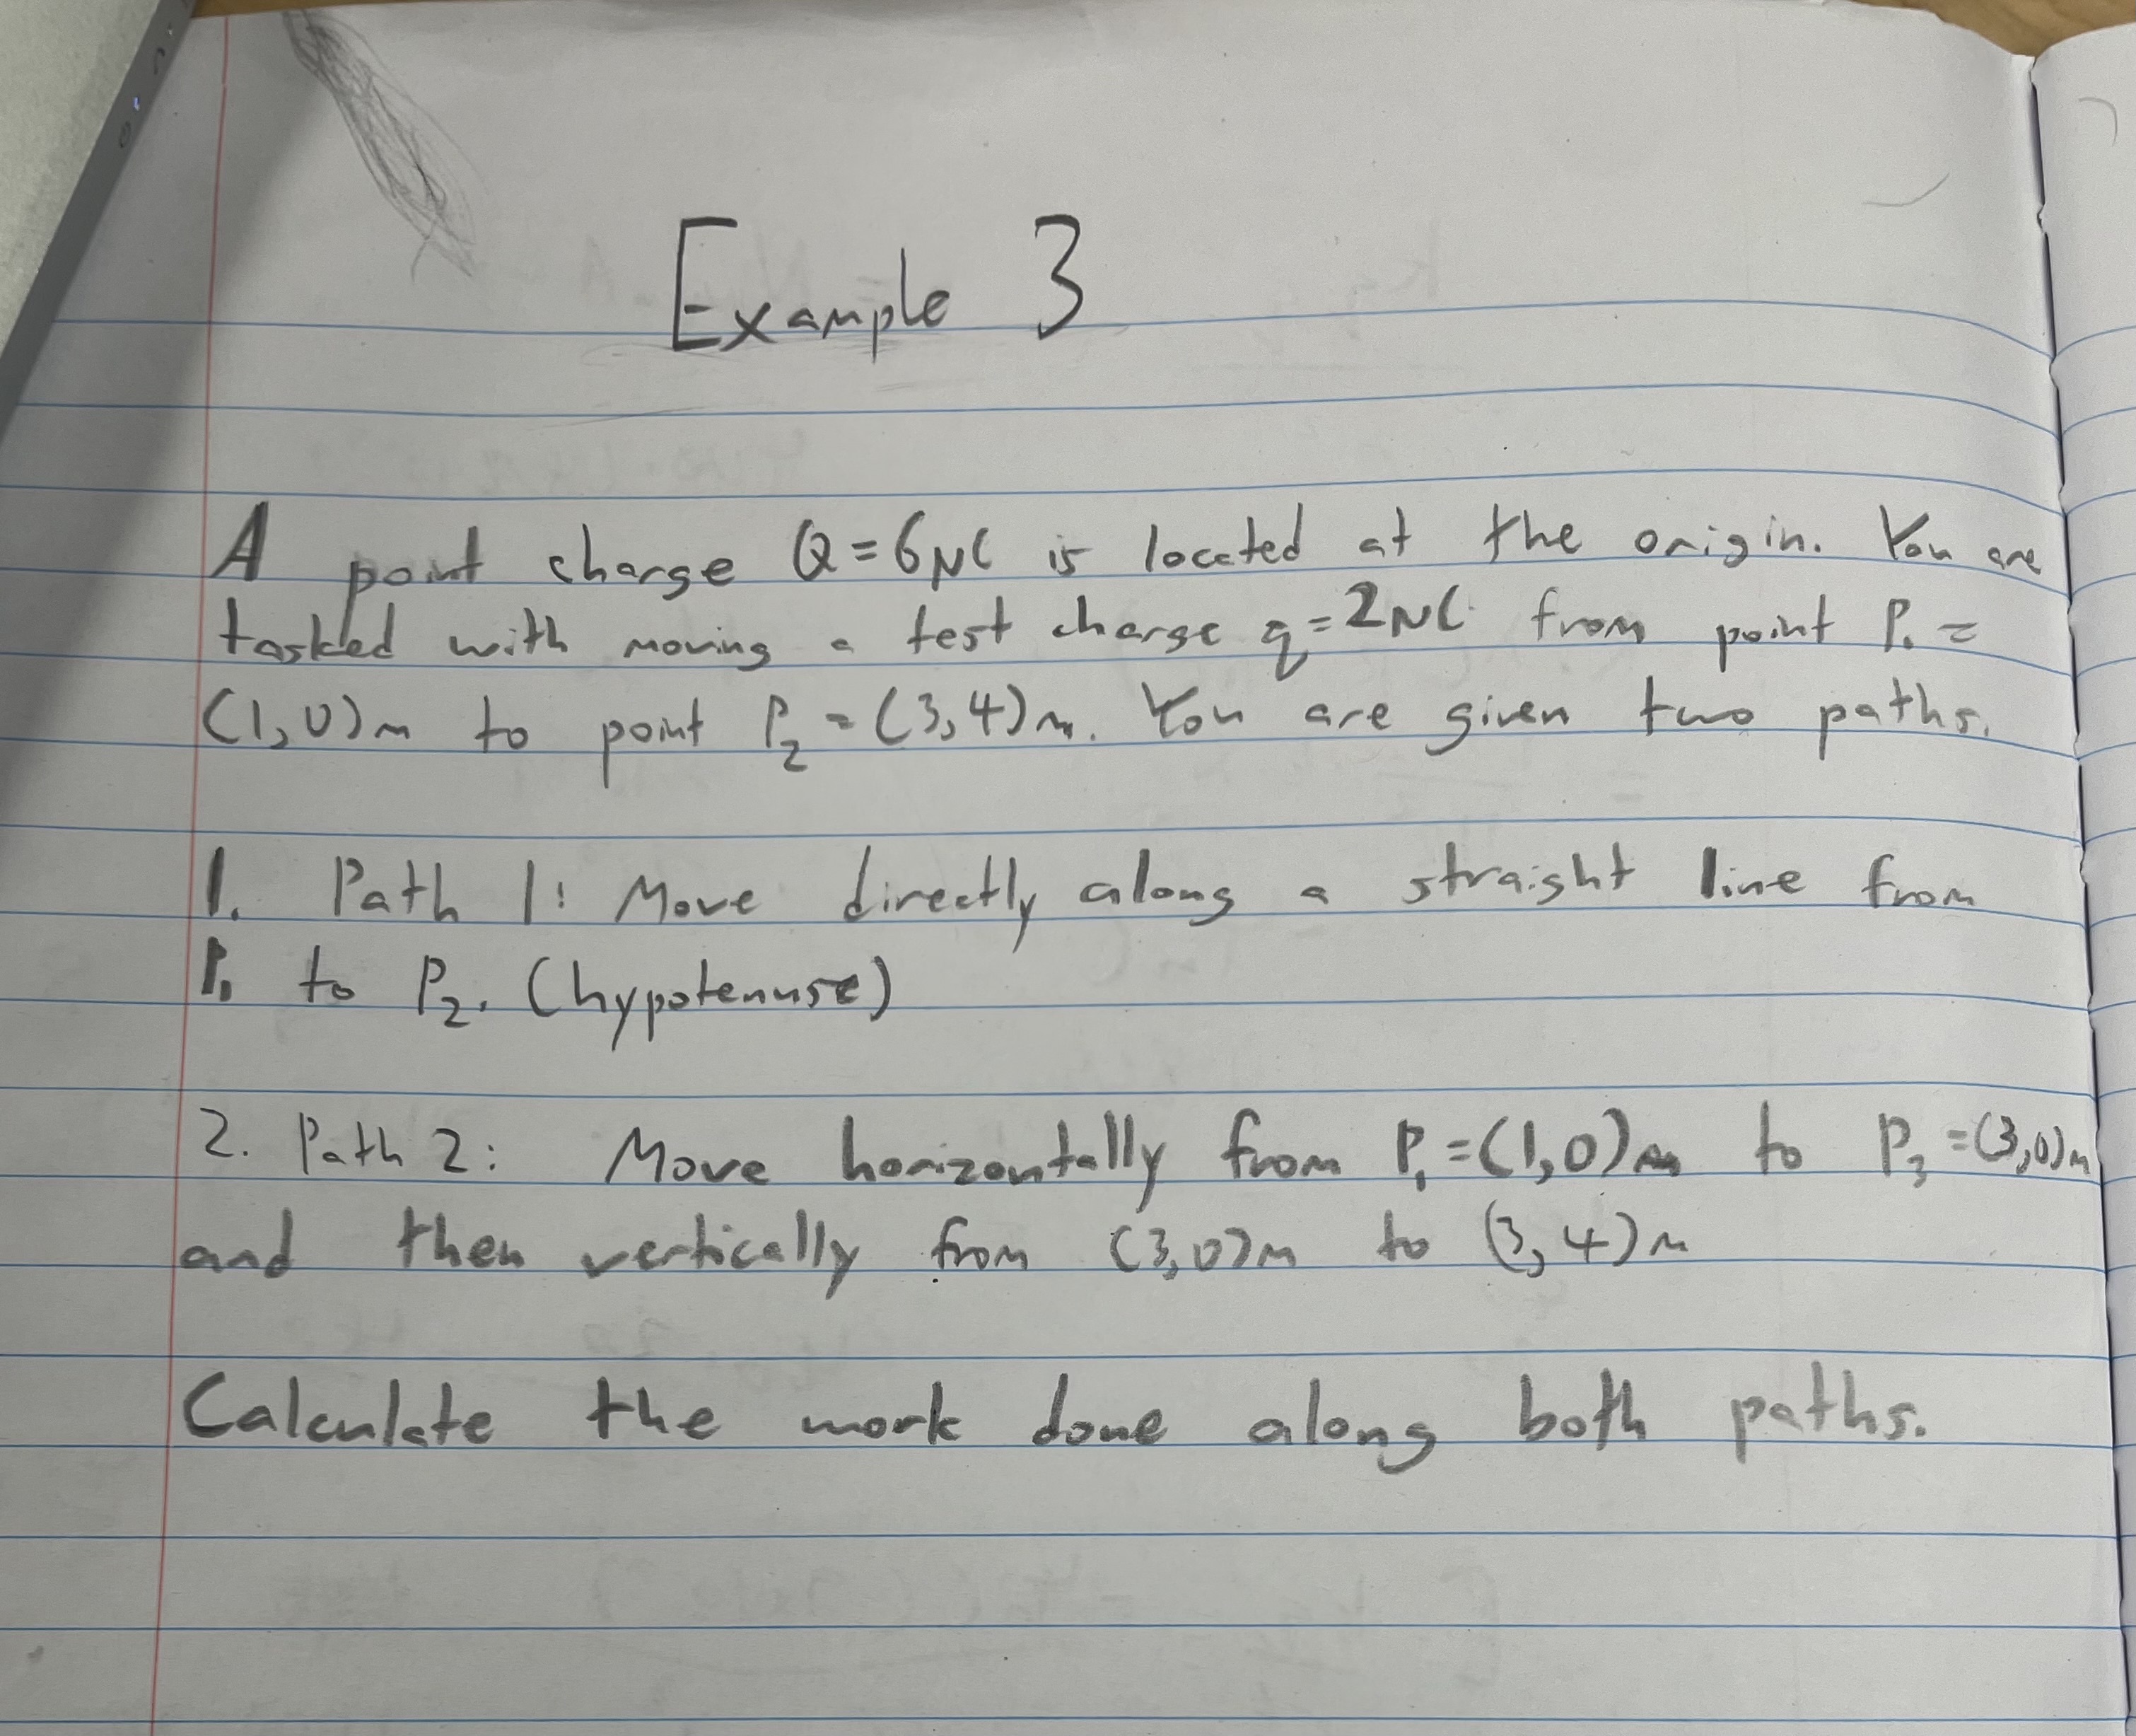 Example 3
A point charge Q = 6 μC is located at the origin. You are
tasked with moving a test charge q = 2 μC from point P₁ =
(1,0)m to point P₂ = (3,4)m. You are given two paths.
1. Path 1: Move directly along a straight line from
P₁ to P₂. (hypotenuse)
2. Path 2: Move horizontally from P₁ = (1,0)m to P₃ = (3,0)m
and then vertically from (3,0)m to (3,4)m
Calculate the work done along both paths.